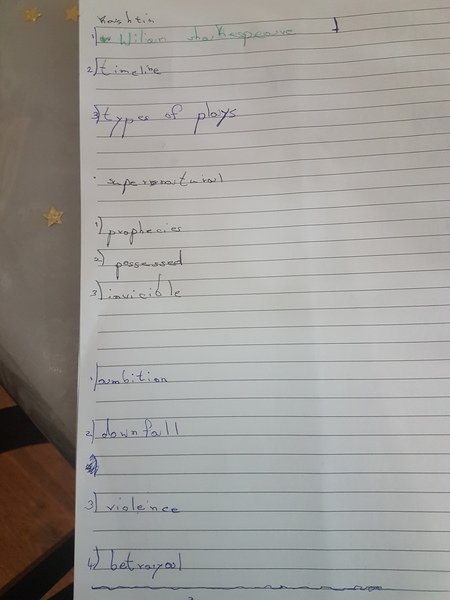 Kashtin
1) Wiliam shakespearve
2) timeline
3) types of plays
supernatural
1) prophecies
2) possessed
3) invicible
1) ambition
2) downfall
3) violence
4) betrayal